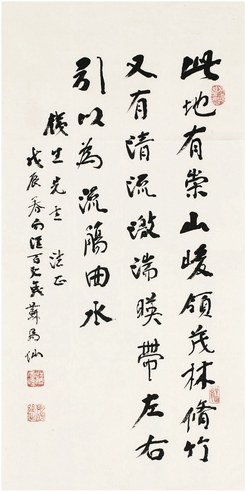 此地有崇山峻領茂林脩竹
又有清流激湍暎帶左右
引以為流觴曲水
先生法正
戊辰春百老歲蘇局仙